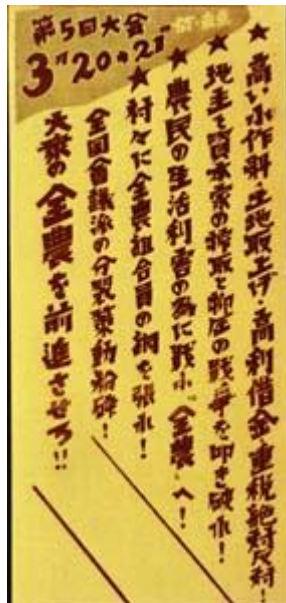 第5回大会
3月20日21日
★高い小作料・土地取上げ・高利借金・重税絶対反対!
★地主と資本家の搾取と抑圧の戦争を叩き破れ!
★農民の生活利害の為に戦ふ“全農”へ!
★村々に全農組合員の網を張れ!
全国会議派の分裂策動粉砕!
大衆の全農を前進させろ!!